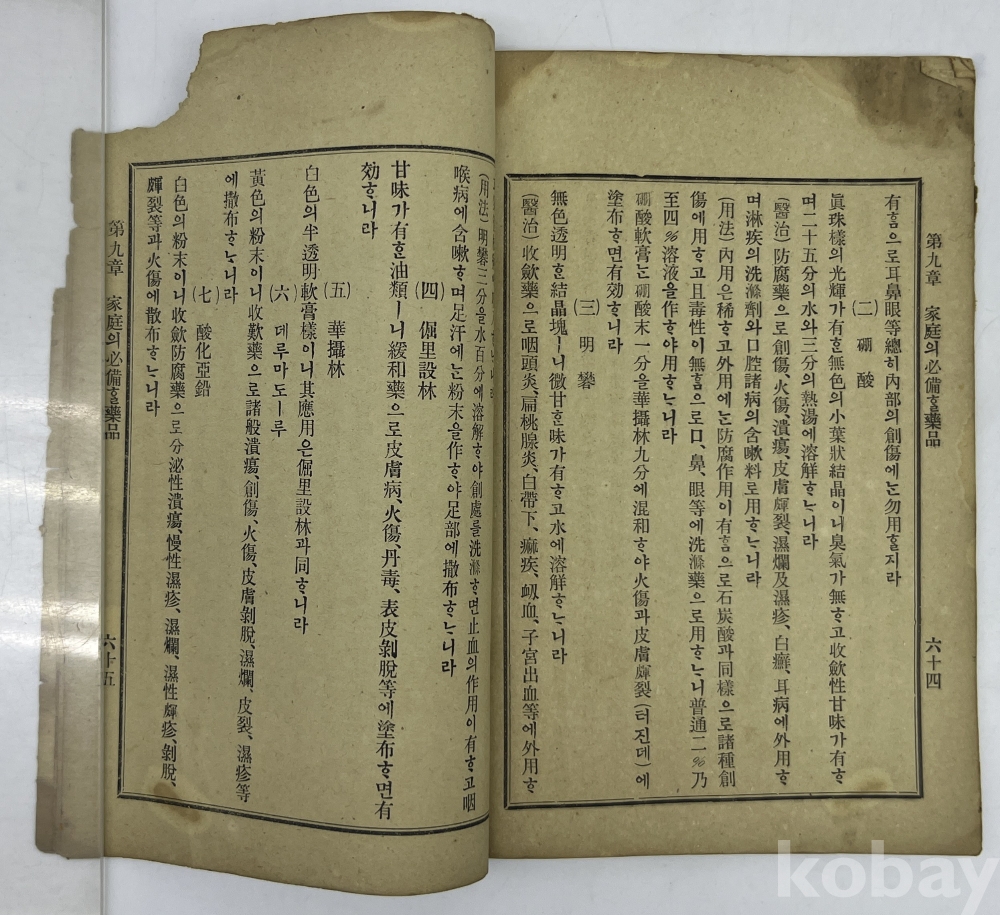 第九章 家庭의必備ᄒᆞᆯ藥品 六十四
有ᄒᆞᆷ으로耳鼻眼等總히內部의創傷에ᄂᆞᆫ勿用ᄒᆞᆯ지라
(二) 硼酸
眞珠樣의光輝가有ᄒᆞᆫ無色의小葉狀結晶이니臭氣가無ᄒᆞ고收歛性甘味가有ᄒᆞ
며二十五分의水와三分의熱湯에溶解ᄒᆞᄂᆞ니라
(醫治)防腐藥으로創傷、火傷、潰瘍、皮膚皹裂、濕爛及濕疹、白癬、耳病에外用ᄒᆞ
며淋疾의洗滌劑와口腔諸病의含嗽料로用ᄒᆞᄂᆞ니라
(用法)內用은稀ᄒᆞ고外用에ᄂᆞᆫ防腐作用이有ᄒᆞᆷ으로石炭酸과同樣으로諸種創
傷에用ᄒᆞ고且毒性이無ᄒᆞᆷ으로口、鼻、眼等에洗滌藥으로用ᄒᆞᄂᆞ니普通二%乃
至四%溶液을作ᄒᆞ야用ᄒᆞᄂᆞ니라
硼酸軟膏ᄂᆞᆫ硼酸末一分을華攝林九分에混和ᄒᆞ야火傷과皮膚皹裂(터진데)에
塗布ᄒᆞ면有効ᄒᆞ니라
(三) 明礬
無色透明ᄒᆞᆫ結晶塊ㅣ니微甘ᄒᆞᆫ味가有ᄒᆞ고水에溶解ᄒᆞᄂᆞ니라
(醫治)收歛藥으로咽頭炎、扁桃腺炎、白帶下、痲疾、衂血、子宮出血等에外用ᄒᆞ
(用法)明礬三分을水百分에溶解ᄒᆞ야創處를洗滌ᄒᆞ면止血의作用이有ᄒᆞ고咽
喉病에含嗽ᄒᆞ며足汗에ᄂᆞᆫ粉末을作ᄒᆞ야足部에撒布ᄒᆞᄂᆞ니라
(四) 倔里設林
甘味가有ᄒᆞᆫ油類ㅣ니緩和藥으로皮膚病、火傷、丹毒、表皮剝脫等에塗布ᄒᆞ면有
効ᄒᆞ니라
(五) 華攝林
白色의半透明軟膏樣이니其應用은倔里設林과同ᄒᆞ니라
(六) 데루마도ㅣ루
黃色의粉末이니收歛藥으로諸般潰瘍、創傷、火傷、皮膚剝脫、濕爛、皮裂、濕疹等
에撒布ᄒᆞᄂᆞ니라
(七) 酸化亞鉛
白色의粉末이니收歛防腐藥으로分泌性潰瘍、慢性濕疹、濕爛、濕性皹疹、剝脫、
皹裂等과火傷에散布ᄒᆞᄂᆞ니라
第九章 家庭의必備ᄒᆞᆯ藥品 六十五
kobay